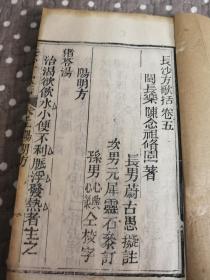 長沙方歌括卷五
閩長樂陳念祖修園著
長男蔚古愚擬註
次男元犀靈石參訂
孫男心典心蘭仝校字
陽明方
豬苓湯
治渴欲飲水小便不利脈浮發熱者主之
陽明方